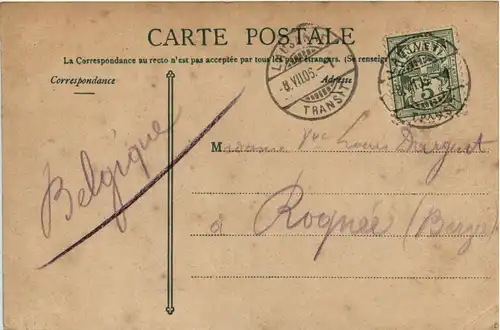 CARTE POSTALE
La Correspondance au recto n'est pas acceptée par tous les pays étrangers. (Se renseigner
Correspondance
Adresse
-8.VII.05.-7
TRANSIT
5
Madame Vve Louis
Belgique
à Rognée